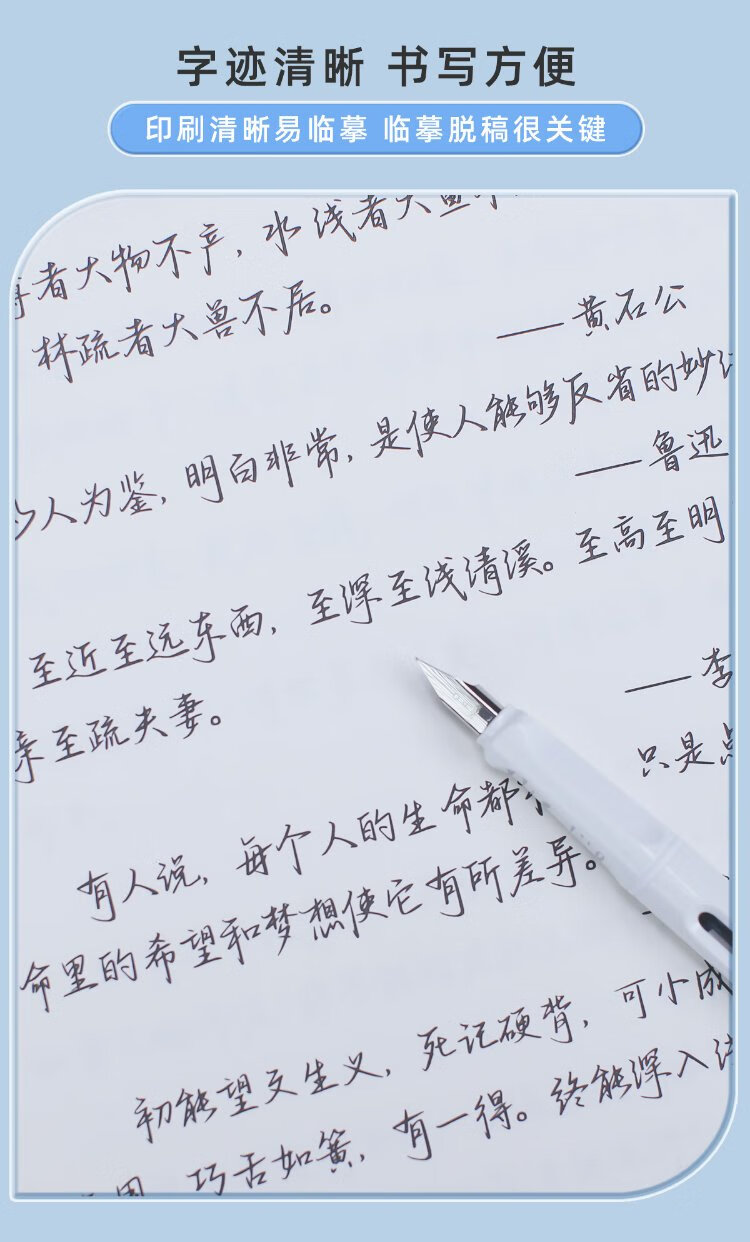 字迹清晰 书写方便
印刷清晰易临摹 临摹脱稿很关键
者大物不产，水浅者大鱼
林疏者大兽不居。
——黄石公
人为鉴，明白非常，是使人能够反省的妙
——鲁迅
至近至远东西，至深至浅清溪。至高至明
——李
亲至疏夫妻。
只是
有人说，每个人的生命都
命里的希望和梦想使它有所差异。
初能望文生义，死记硬背，可小成
巧舌如簧，有一得。终能深入